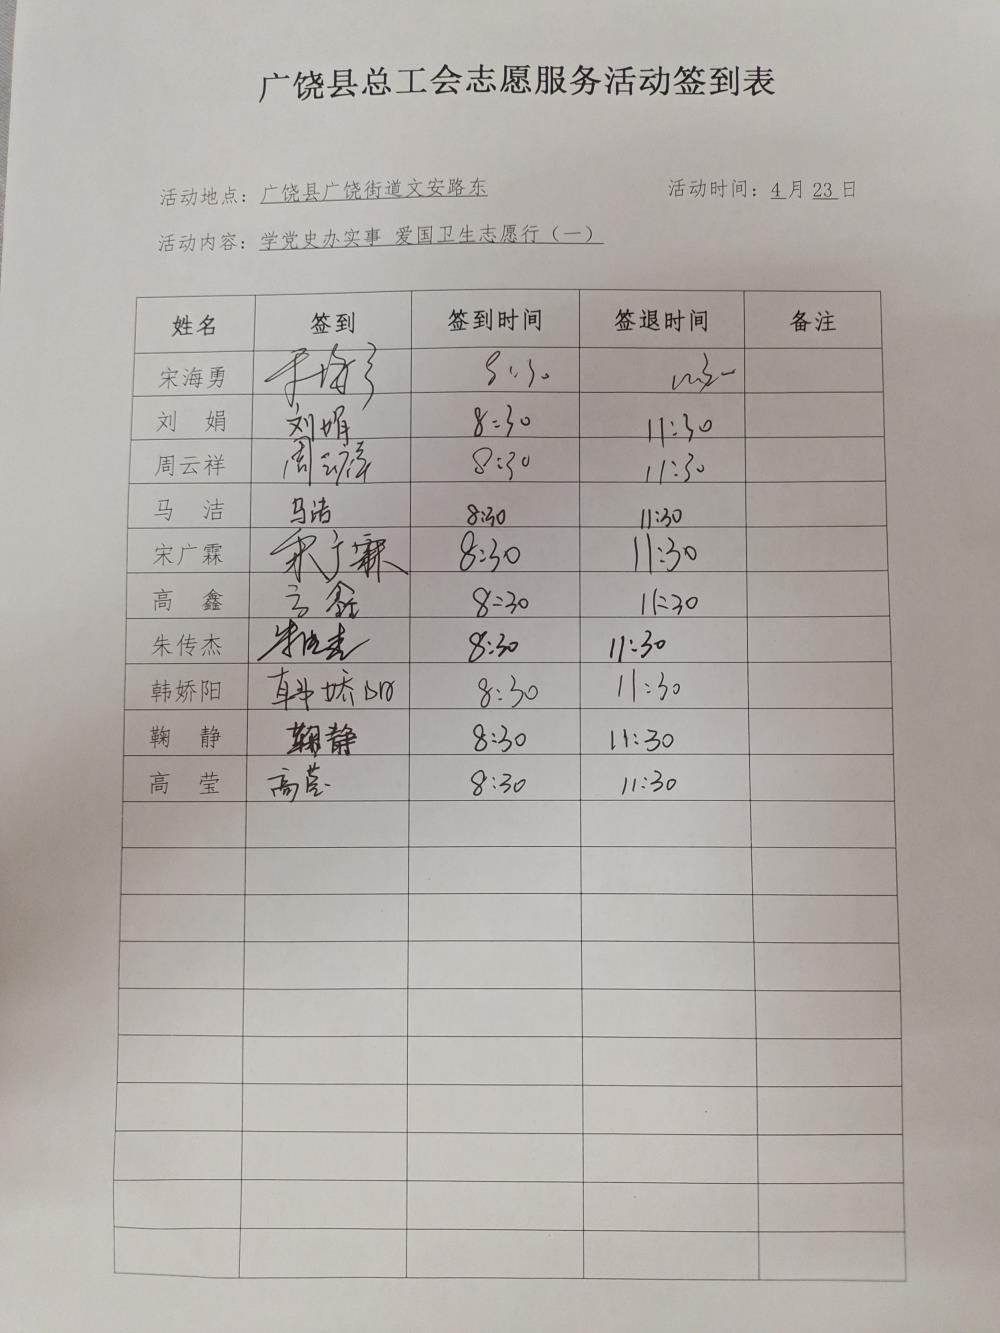 广饶县总工会志愿服务活动签到表
活动地点：广饶县广饶街道文安路东 活动时间：4月23日
活动内容：学党史办实事 爱国卫生志愿行（一）
姓名 签到 签到时间 签退时间 备注
宋海勇 8:30
刘 娟 刘娟 8:30 11:30
周云祥 周云祥 8:30 11:30
马 洁 马洁 8:30 11:30
宋广霖 宋广霖 8:30 11:30
高 鑫 高鑫 8:30 11:30
朱传杰 朱传杰 8:30 11:30
韩娇阳 韩娇阳 8:30 11:30
鞠 静 鞠静 8:30 11:30
高 莹 高莹 8:30 11:30